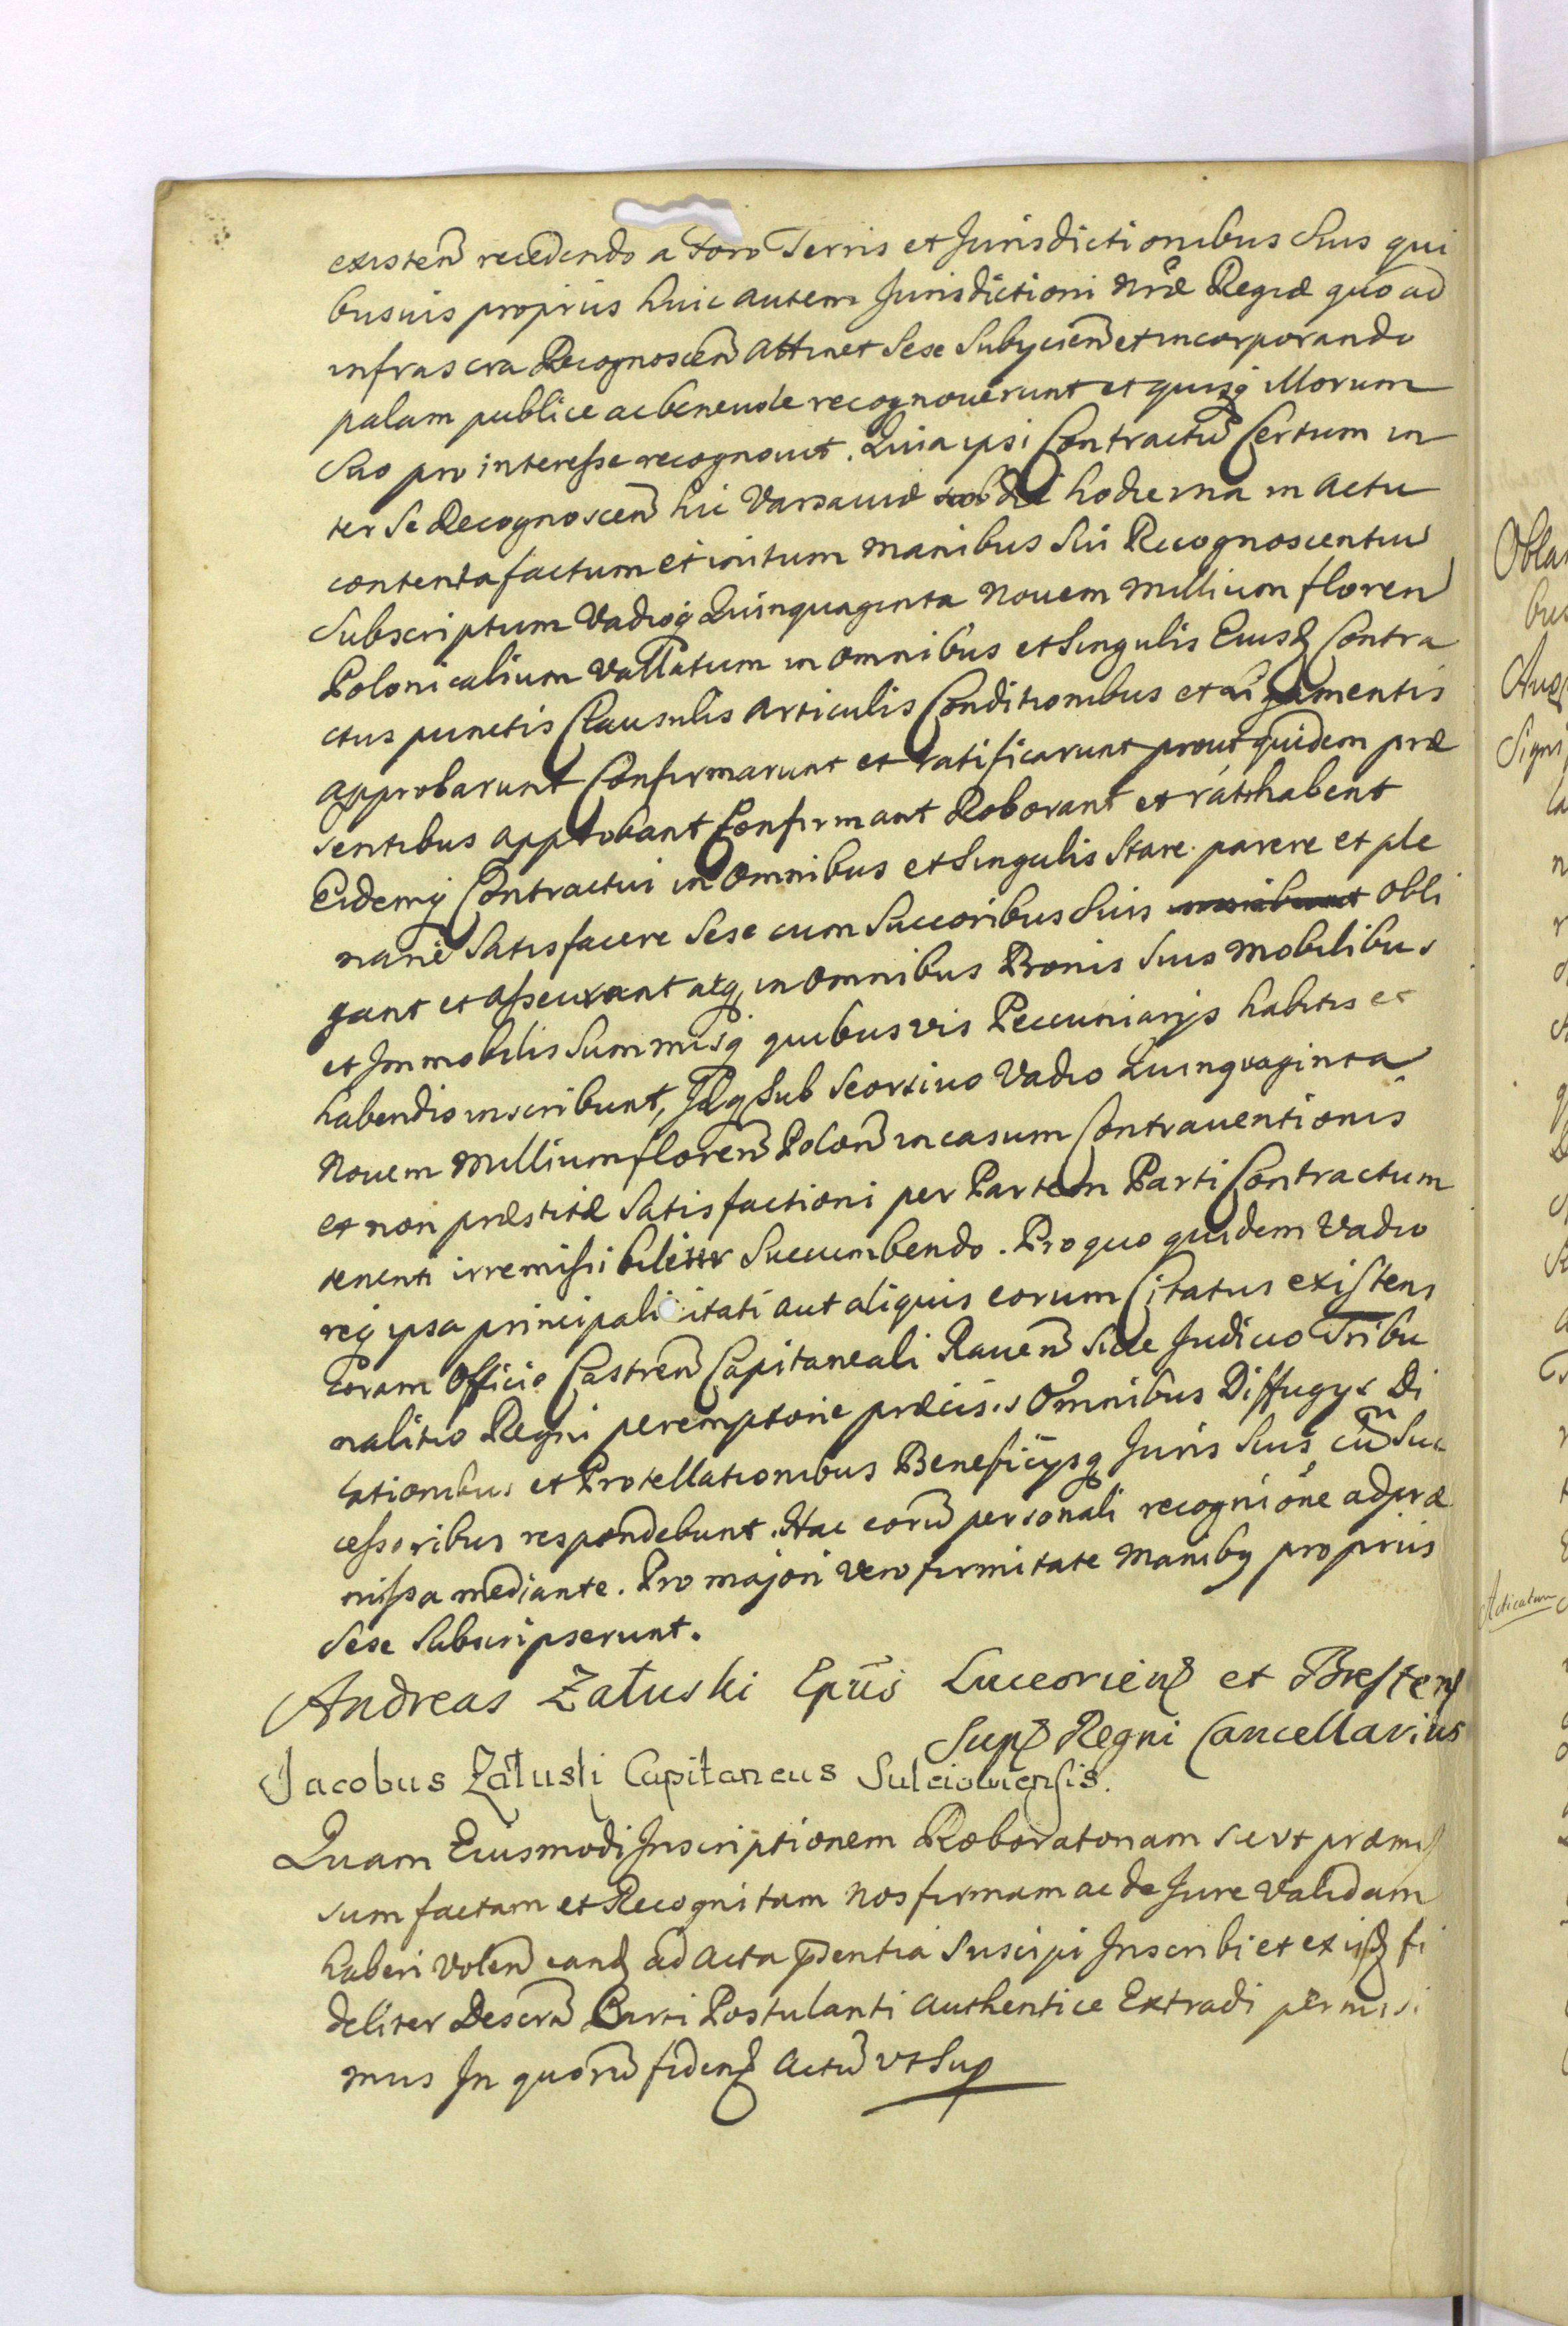 existen̄ recedendo a Foro Terris et Jurisdictionibus Suis qui
busuis proprijs huic autem Jurisdictioni Nr̃æ Regiæ quo ad
infrascra Recognoscen̄ Attinet Sese Subijcien̄ et incorporando
palam publice ac beneuole recognouerunt et quisq Illorum
Suo pro interesse recognouit. Quia ipsi Contractū Certum in
ter Se Recognoscen̄ hic Varsauiæ die hodierna in Actu
contenta factum et initum Manibus Sui Recognoscentiū
Subscriptum Vadioq Quinquaginta Nouem Millium floren̄
Polonicalium Vallatum in Omnibus et Singulis Eiusd Contra
ctus punctis Clausulis Articulis Conditionibus et Ligamentis
Approbarunt Confirmarunt et ratificarunt prout quidem præ
sentibus approbant Confirmant Roborant et ratihabent
Eidemq Contractui in Omnibus et Singulis Stare parere et ple
narie Satisfacere Sese cum Succoribus Suis Obli
gant et Assecurant atq in Omnibus Bonis Suis Mobilibus
et Immobilis Summisq quibusvis Pecuniarijs habitis et
habendis inscribunt, Idq Sub Seorsiuo Vadio Quinquaginta
Nouem Millium floren̄ Polon̄ in casum Contrauentionis
et non præstitæ Satisfactioni per Partem Parti Contractum
tenenti irremissibiliter Succumbendo. Pro quo quidem Vadio
req ipsa principali itati aut aliquis eorum Citatus existens
Coram Officio Castren̄ Capitaneali Rauen̄ Siue Judicio Tribu
nalitio Regni peremptorie præcisis Omnibus Diffugijs Di
lationibus et Protellationibus Beneficijsq Juris Suis cū Suc
cessoribus respondebunt. Hac eorū personali recognione ad præ
missa mediante. Pro majori vero firmitate Manibq proprijs
Sese Subscripserunt.
Andreas Załuski Epūs Luceorien̄ et Bresten̄
Sup Regni Cancellarius
Jacobus Załuski Capitaneus Suleiouiensis.
Quam Eiusmodi Inscriptionem Roboratoriam Sicut præmis
sum factam et Recognitam Nos firmam ac de Jure Validam
haberi Volen̄ eand ad Acta p̄sentia Suscipi Inscribi et ex ijsd fi
deliter Descrū Parti Postulanti Authentice Extradi permisi
mus In quorū fidem Actū vt Sup
Obla
bus
Aug
Signi
Acticatum